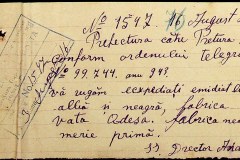 No 1547 16 August
Prefectura către Pretura
conform ordinului telegra
No 99.744. anu 943,
vă rugăm expediați emidiat
albă și neagră, fabrica
vată Odesa. fabrica nea
merie primă.
ss Director